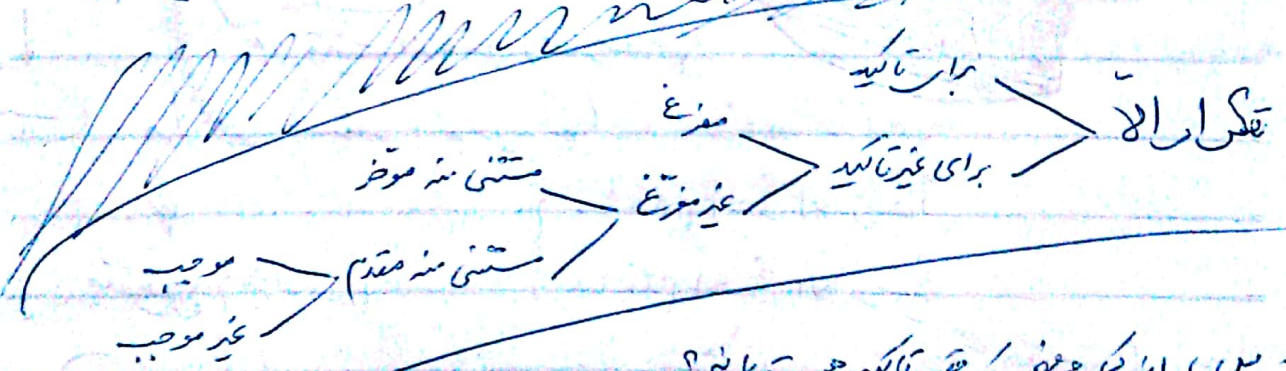 تکرار الاّ
برای تاکید
برای غیر تاکید
مفرغ
غیر مفرّغ
مستثنی منه موخر
مستثنی منه مقدم
موجب
غیر موجب
تاکید